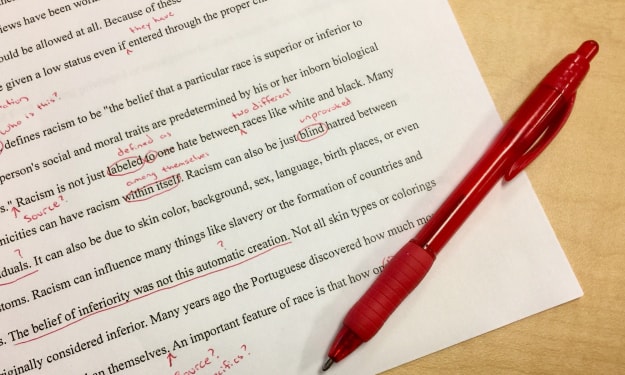 iews have been wor
they have
ould be allowed at all. Because of these
e given a low status even if entered through the proper ch
who is this?
defines racism to be "the belief that a particular race is superior or inferior to
person's social and moral traits are predetermined by his or her inborn biological
defined as two different
s." Racism is not just labeled to one hate between races like white and black. Many
source? among themselves unprovoked
nicities can have racism within itself. Racism can also be just blind hatred between
duals. It can also be due to skin color, background, sex, language, birth places, or even
?
stoms. Racism can influence many things like slavery or the formation of countries and
s. The belief of inferiority was not this automatic creation. Not all skin types or colorings
iginally considered inferior. Many years ago the Portuguese discovered how much mo
an themselves. An important feature of race is that how
source?